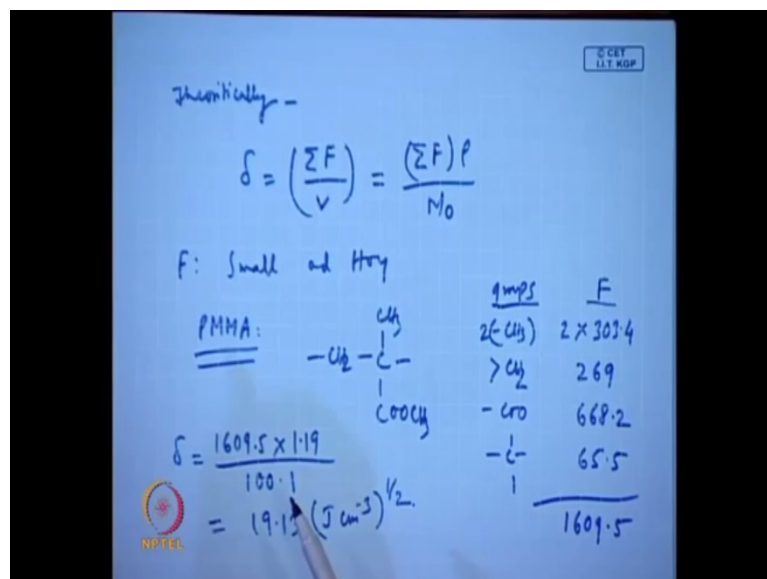 © CET
I.I.T. KGP
Theoritically –
δ = (ΣF / V) = (ΣF)ρ / M₀
F: Small and Hoy
groups F
PMMA:
CH₃
|
–CH₂ – C –
|
COOCH₃
2(–CH₃) 2 × 303.4
>CH₂ 269
–COO 668.2
–C– 65.5
1609.5
δ = 1609.5 × 1.19 / 100.1
= 19.13 (J cm⁻³)^1/2.
NPTEL